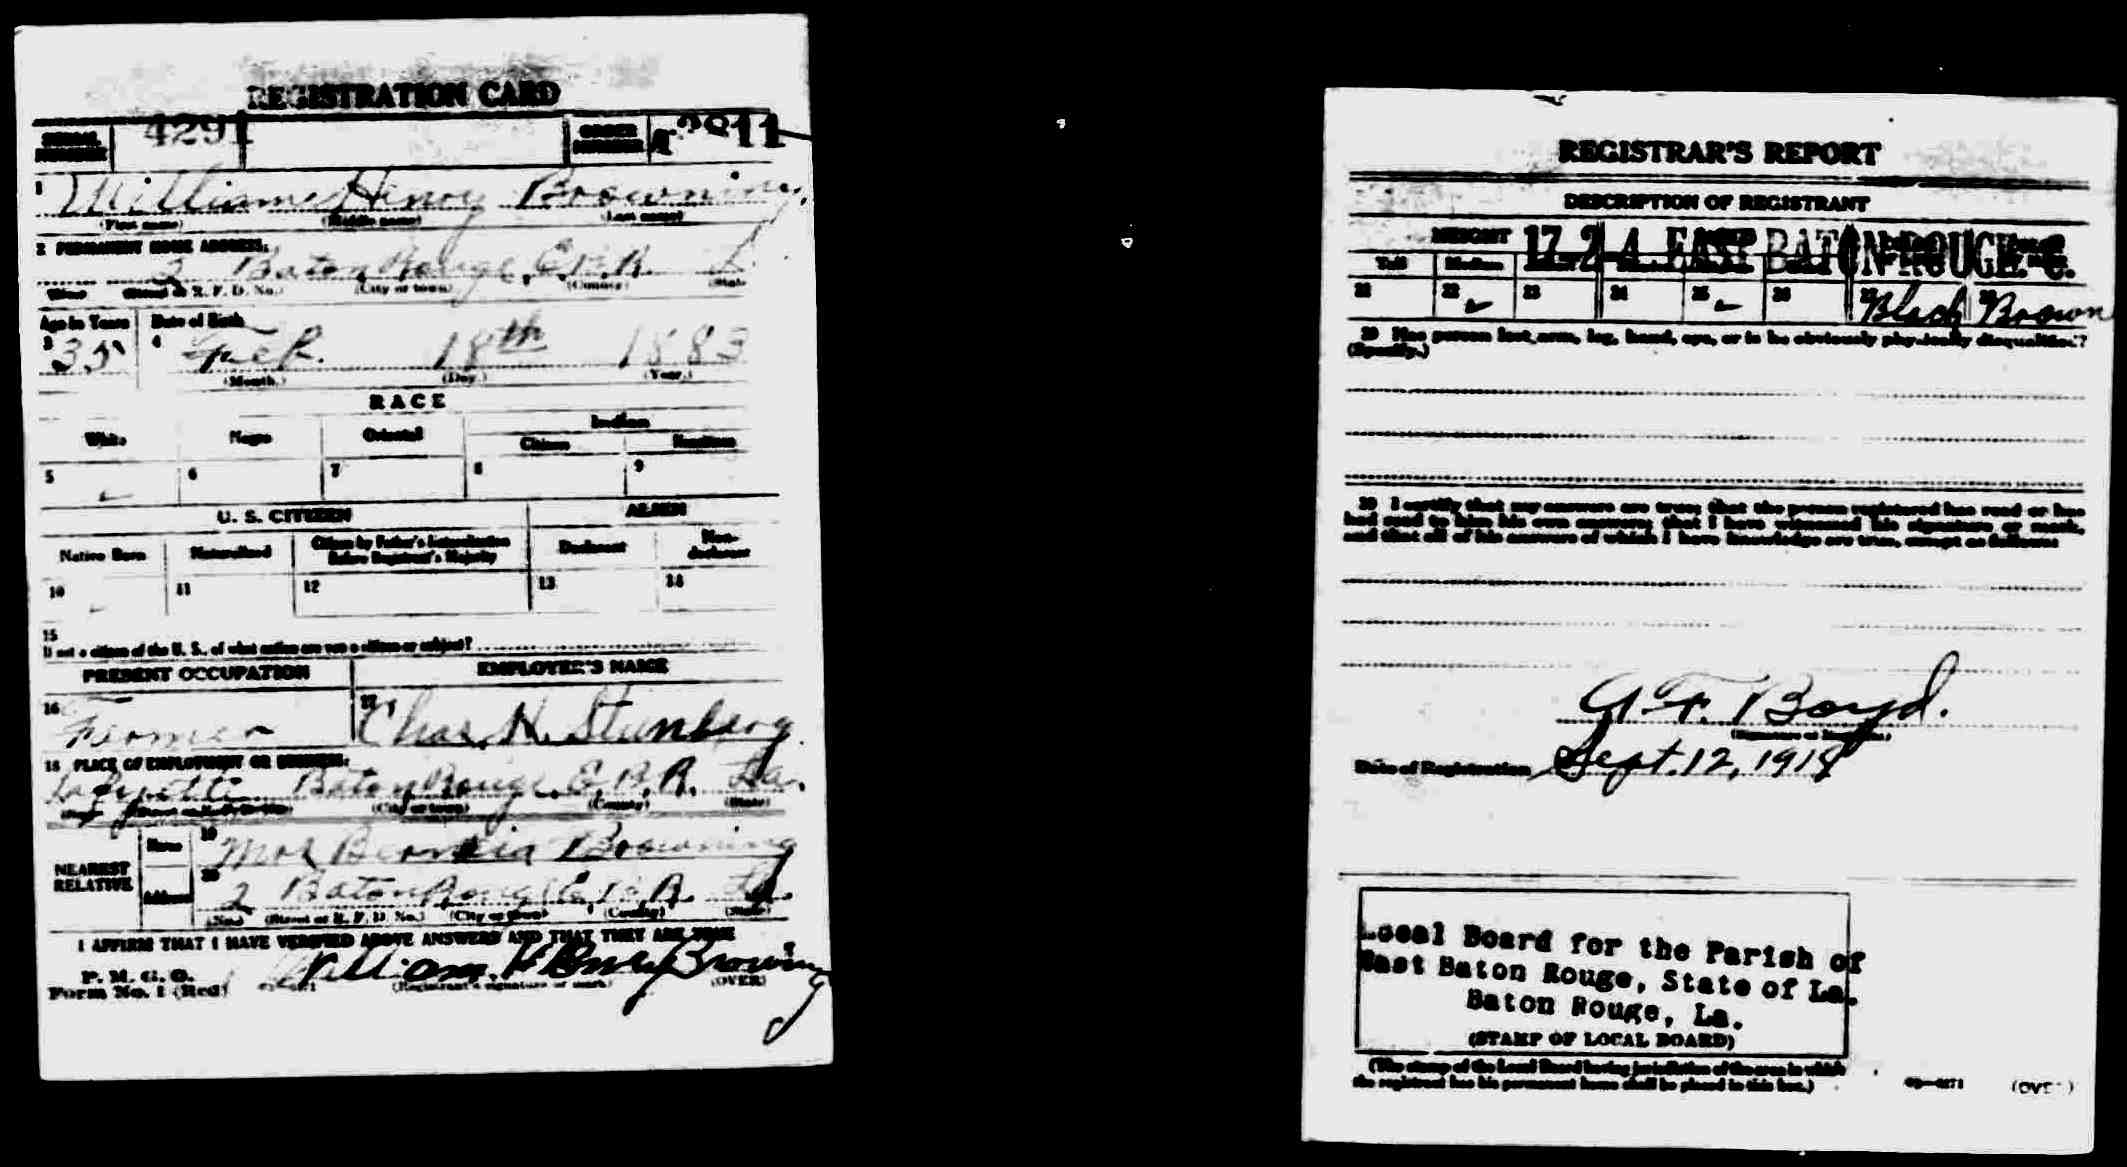 REGISTRATION CARD
SERIAL NUMBER 4291 ORDER NUMBER A 3811
1 William Henry Browning
(First name) (Middle name) (Last name)
2 PERMANENT HOME ADDRESS:
2 Baton Rouge, E.B.R. La.
(No.) (Street or R. F. D. No.) (City or town) (County) (State)
Age in Years Date of Birth
3 35 4 Feb. 18th 1883
(Month.) (Day.) (Year.)
RACE
White Negro Oriental Indian
Citizen Noncitizen
5 6 7 8 9
U. S. CITIZEN ALIEN
Native Born Naturalized Citizen by Father's Naturalization Before Registrant's Majority Declarant Non-declarant
10 11 12 13 14
15
If not a citizen of the U. S., of what nation are you a citizen or subject?
PRESENT OCCUPATION EMPLOYER'S NAME
16 Farmer 17 Chas. H.
18 PLACE OF EMPLOYMENT OR BUSINESS:
Lafayette Baton Rouge, E.B.R. La.
(No.) (Street or R. F. D. No.) (City or town) (County) (State)
NEAREST RELATIVE
Name 19 Mrs Browning
Address 20 2 Baton Rouge E.B.R. La.
(No.) (Street or R. F. D. No.) (City or town) (County) (State)
I AFFIRM THAT I HAVE VERIFIED ABOVE ANSWERS AND THAT THEY ARE TRUE
P. M. G. O.
Form No. 1 (Red) William Henry Browning
(Registrant's signature or mark) (OVER)
REGISTRAR'S REPORT
DESCRIPTION OF REGISTRANT
HEIGHT 17-2-4 EAST BATON ROUGE. C.
Tall Medium
21 22 23 24 25 26 27 Black 28 Brown
29 Has person lost arm, leg, hand, eye, or is he obviously physically disqualified?
(Specify.)
30 I certify that my answers are true; that the person registered has read or has
had read to him his own answers; that I have witnessed his signature or mark,
and that all of his answers of which I have knowledge are true, except as follows:
G. F. Boyd.
(Signature of Registrar.)
Date of Registration Sept. 12, 1918
Local Board for the Parish of
East Baton Rouge, State of La.
Baton Rouge, La.
(STAMP OF LOCAL BOARD)
(The stamp of the Local Board having jurisdiction of the area in which
the registrant has his permanent home shall be placed in this box.)
(OVER)